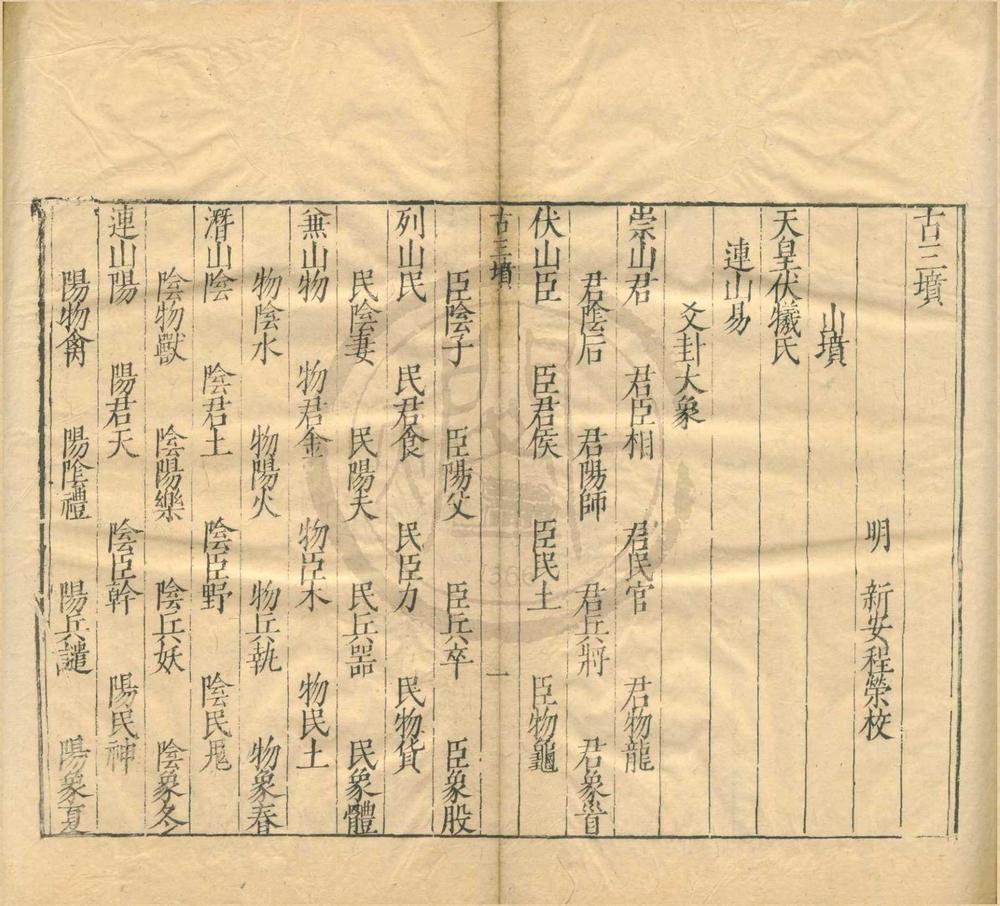 古三墳
明　新安程榮校
山墳
天皇伏犧氏
連山易
爻卦大象
崇山君　君臣相　君民官　君物龍
君陰后　君陽師　君兵將　君象首
伏山臣　臣君侯　臣民士　臣物龜
古三墳　一
臣陰子　臣陽父　臣兵卒　臣象股
列山民　民君食　民臣力　民物貨
民陰妻　民陽夫　民兵器　民象體
兼山物　物君金　物臣木　物民土
物陰水　物陽火　物兵執　物象春
潛山陰　陰君土　陰臣野　陰民鬼
陰物獸　陰陽樂　陰兵妖　陰象冬
連山陽　陽君天　陰臣幹　陽民神
陽物禽　陽陰禮　陽兵譴　陽象夏